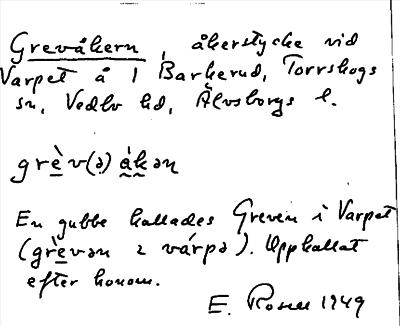 Grevåkern, åkerstycke vid
Varpet å 1 Barkerud, Torrskogs
sn, Vedbo hd, Älvsborgs l.
grèv(ə) å̀kən
En gubbe kallades Greven i Varpet
(grèvən ɪ várpə). Uppkallat
efter honom.
E. Rosen 1949